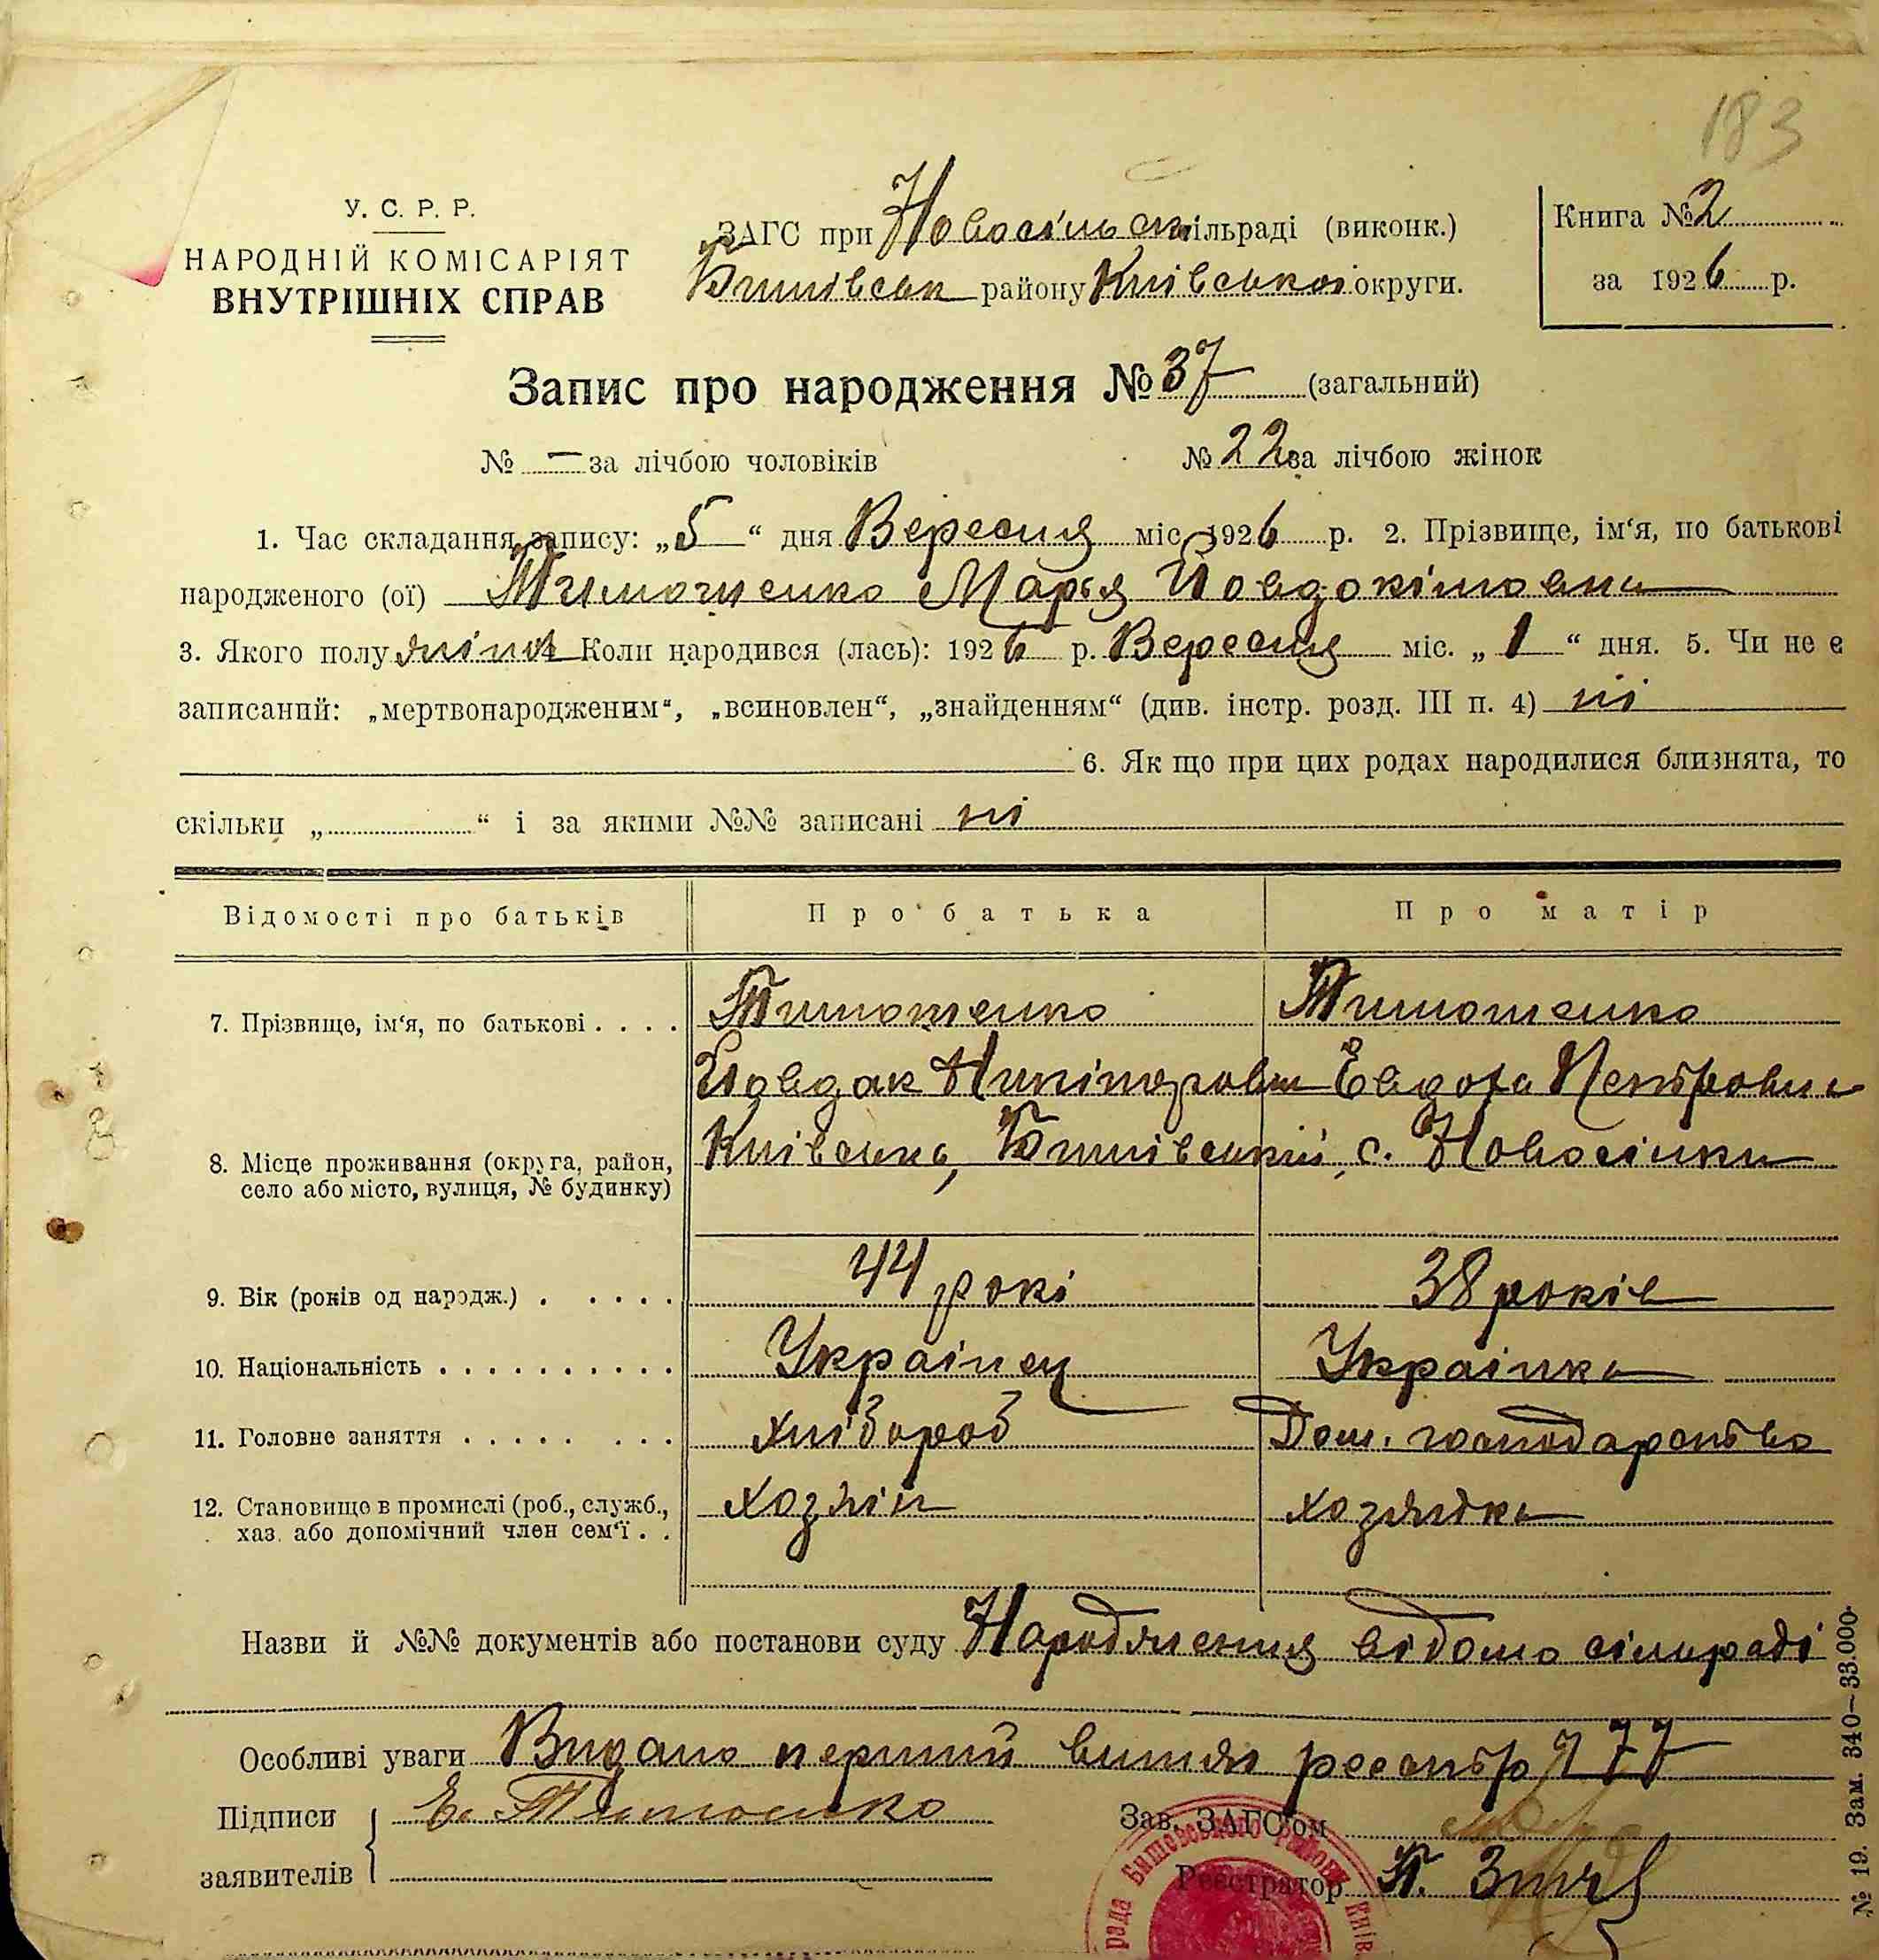 183
У. С. Р. Р.
НАРОДНІЙ КОМІСАРІЯТ
ВНУТРІШНІХ СПРАВ
ЗАГС при Новосільск сільраді (виконк.)
Бишівськ району Київської округи.
Книга № 2
за 1926 р.
Запис про народження № 37 (загальний)
№ — за лічбою чоловіків № 22 за лічбою жінок
1. Час складання запису: „5“ дня Вересня міс 1926 р. 2. Прізвище, ім‘я, по батькові
народженого (ої) Тимошенко Марья Йовдокімовна
3. Якого полу жіноч Коли народився (лась): 1926 р. Вересня міс. „1“ дня. 5. Чи не є
записаний: „мертвонародженим“, „всиновлен“, „знайденням“ (див. інстр. розд. III п. 4) ні
6. Як що при цих родах народилися близнята, то
скільки „ “ і за якими №№ записані ні
Відомості про батьків Про батька Про матір
7. Прізвище, ім‘я, по батькові . . . . Тимошенко Тимошенко
Йовдок Никіпорович Евдоха Петровна
8. Місце проживання (округа, район, Київська, Бишівський, с. Новосілки
село або місто, вулиця, № будинку)
9. Вік (років од народж.) . . . . . 44 рокі 38 років
10. Національність . . . . . . . . . . Украінец Украінка
11. Головне заняття . . . . . . . . хлібороб Дом. господарство
12. Становище в промислі (роб., служб., хозяін хозяйка
хаз. або допомічний член сем‘ї . .
Назви й №№ документів або постанови суду Народження відомо сільраді
Особливі уваги Видано перший витяг реестр № 77
Підписи Е. Тимошенко
заявителів
Зав. ЗАГС‘ом
Реєстратор П.
рада Бишовського району Київ.
№ 19. Зам. 340—33.000.